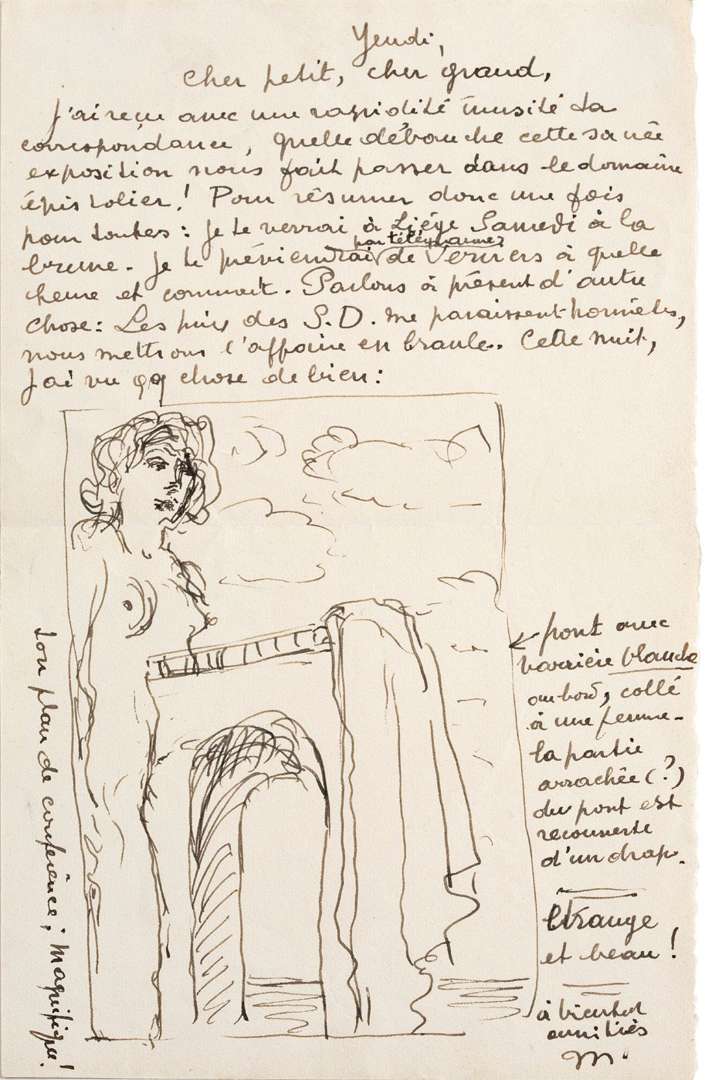 Jeudi,
cher petit, cher grand,
J'ai reçu avec une rapidité inusité ta
correspondance, quelle débauche cette sacrée
exposition nous fait passer dans le domaine
épistolier! Pour résumer donc une fois
pour toutes: je te verrai à Liége Samedi à la
par télégramme
brune. je te préviendrai de Verviers à quelle
heure et comment. Parlons à présent d'autre
chose: Les prix des S.D. me paraissent honnêtes,
nous mettrons l'affaire en branle. Cette nuit,
j'ai vu qq chose de bien:
pont avec
barrière blanche
au bord, collé
à une femme -
la partie
arrachée (?)
du pont est
recouverte
d'un drap.
Etrange
et beau!
à bientot
amitiés
M.
ton plan de conférence; magnifique!